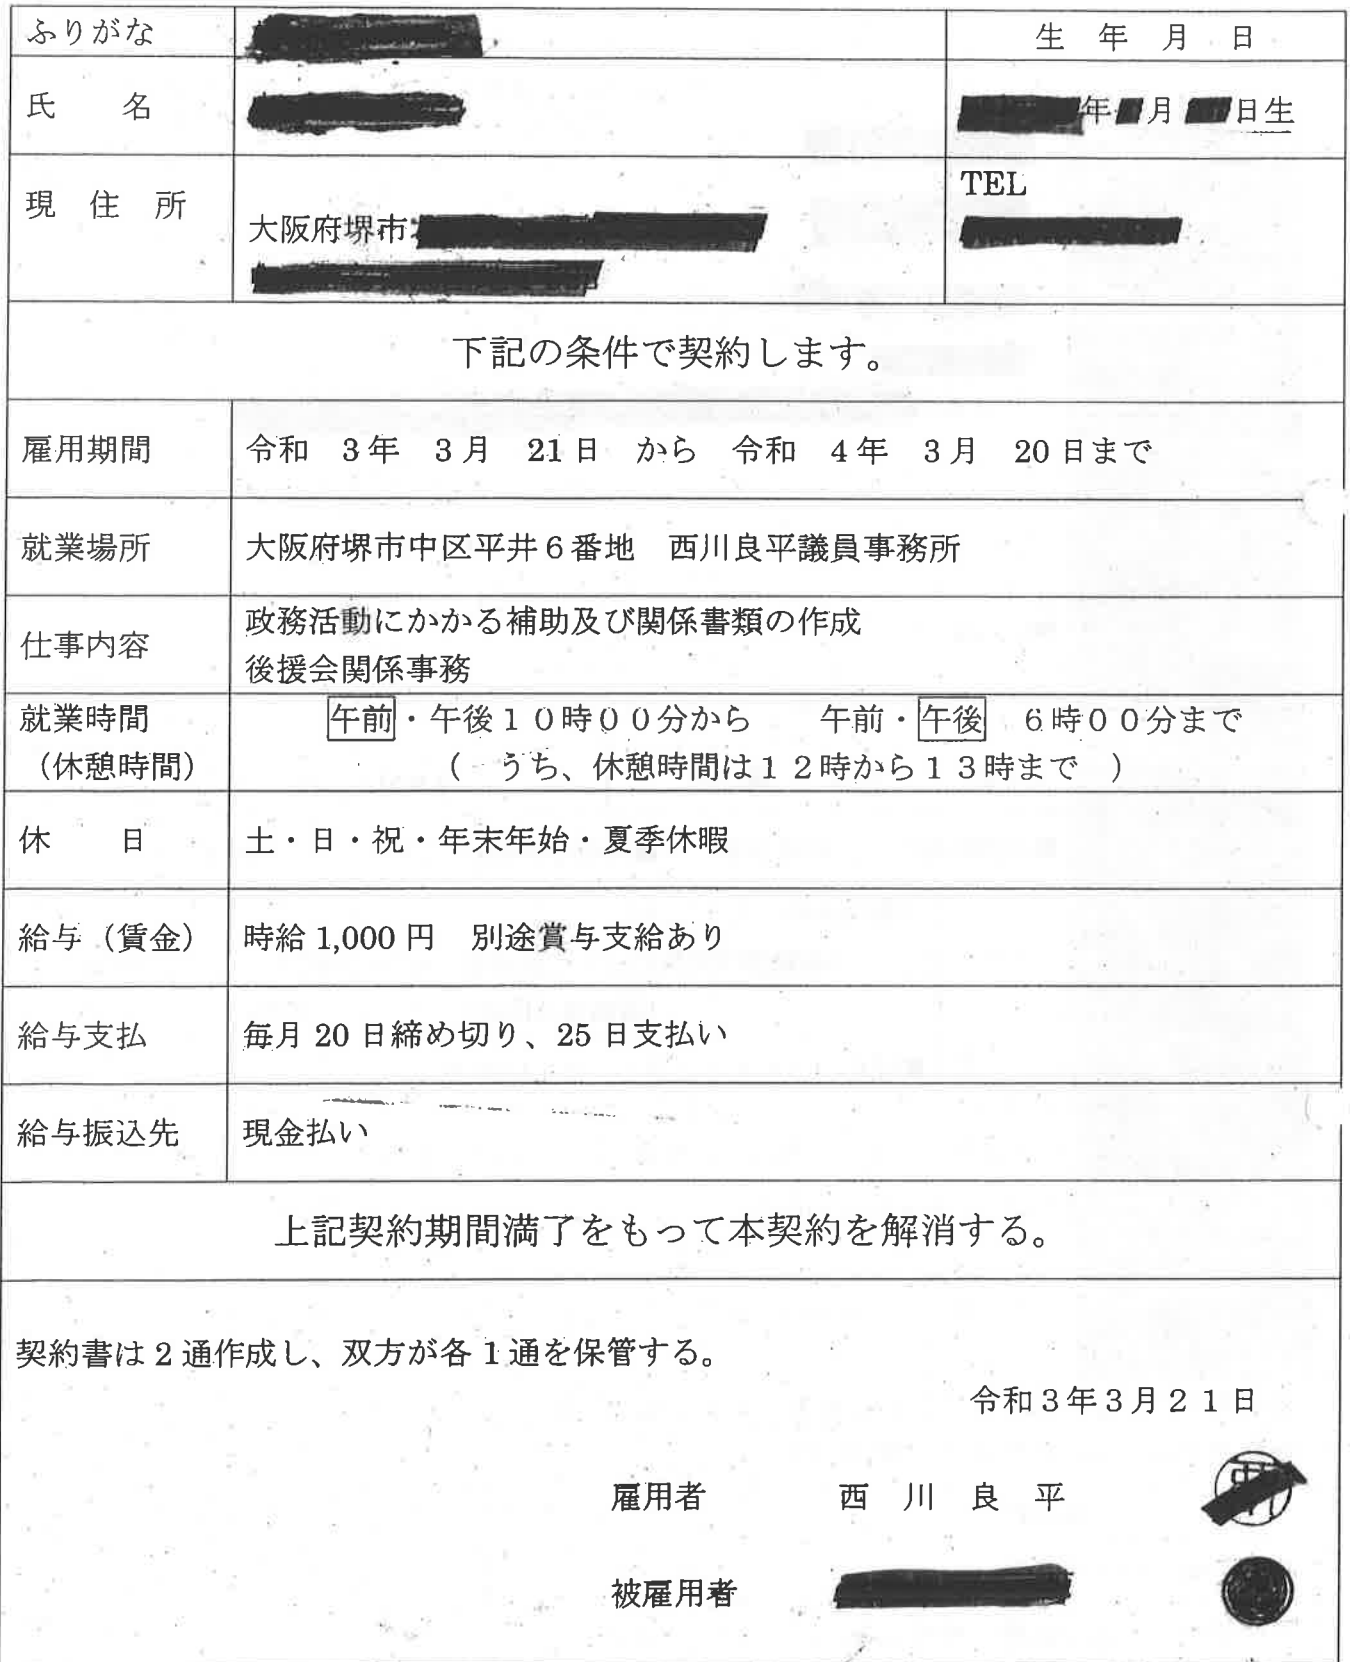 ふりがな
生 年 月 日
氏 名
年 月 日生
現 住 所
大阪府堺市
TEL
下記の条件で契約します。
雇用期間
令和 3年 3月 21日 から 令和 4年 3月 20日まで
就業場所
大阪府堺市中区平井6番地 西川良平議員事務所
仕事内容
政務活動にかかる補助及び関係書類の作成
後援会関係事務
就業時間
(休憩時間)
午前・午後10時00分から 午前・午後 6時00分まで
( うち、休憩時間は12時から13時まで )
休 日
土・日・祝・年末年始・夏季休暇
給与(賃金)
時給 1,000 円 別途賞与支給あり
給与支払
毎月 20 日締め切り、25 日支払い
給与振込先
現金払い
上記契約期間満了をもって本契約を解消する。
契約書は 2 通作成し、双方が各 1 通を保管する。
令和3年3月21日
雇用者 西 川 良 平
被雇用者